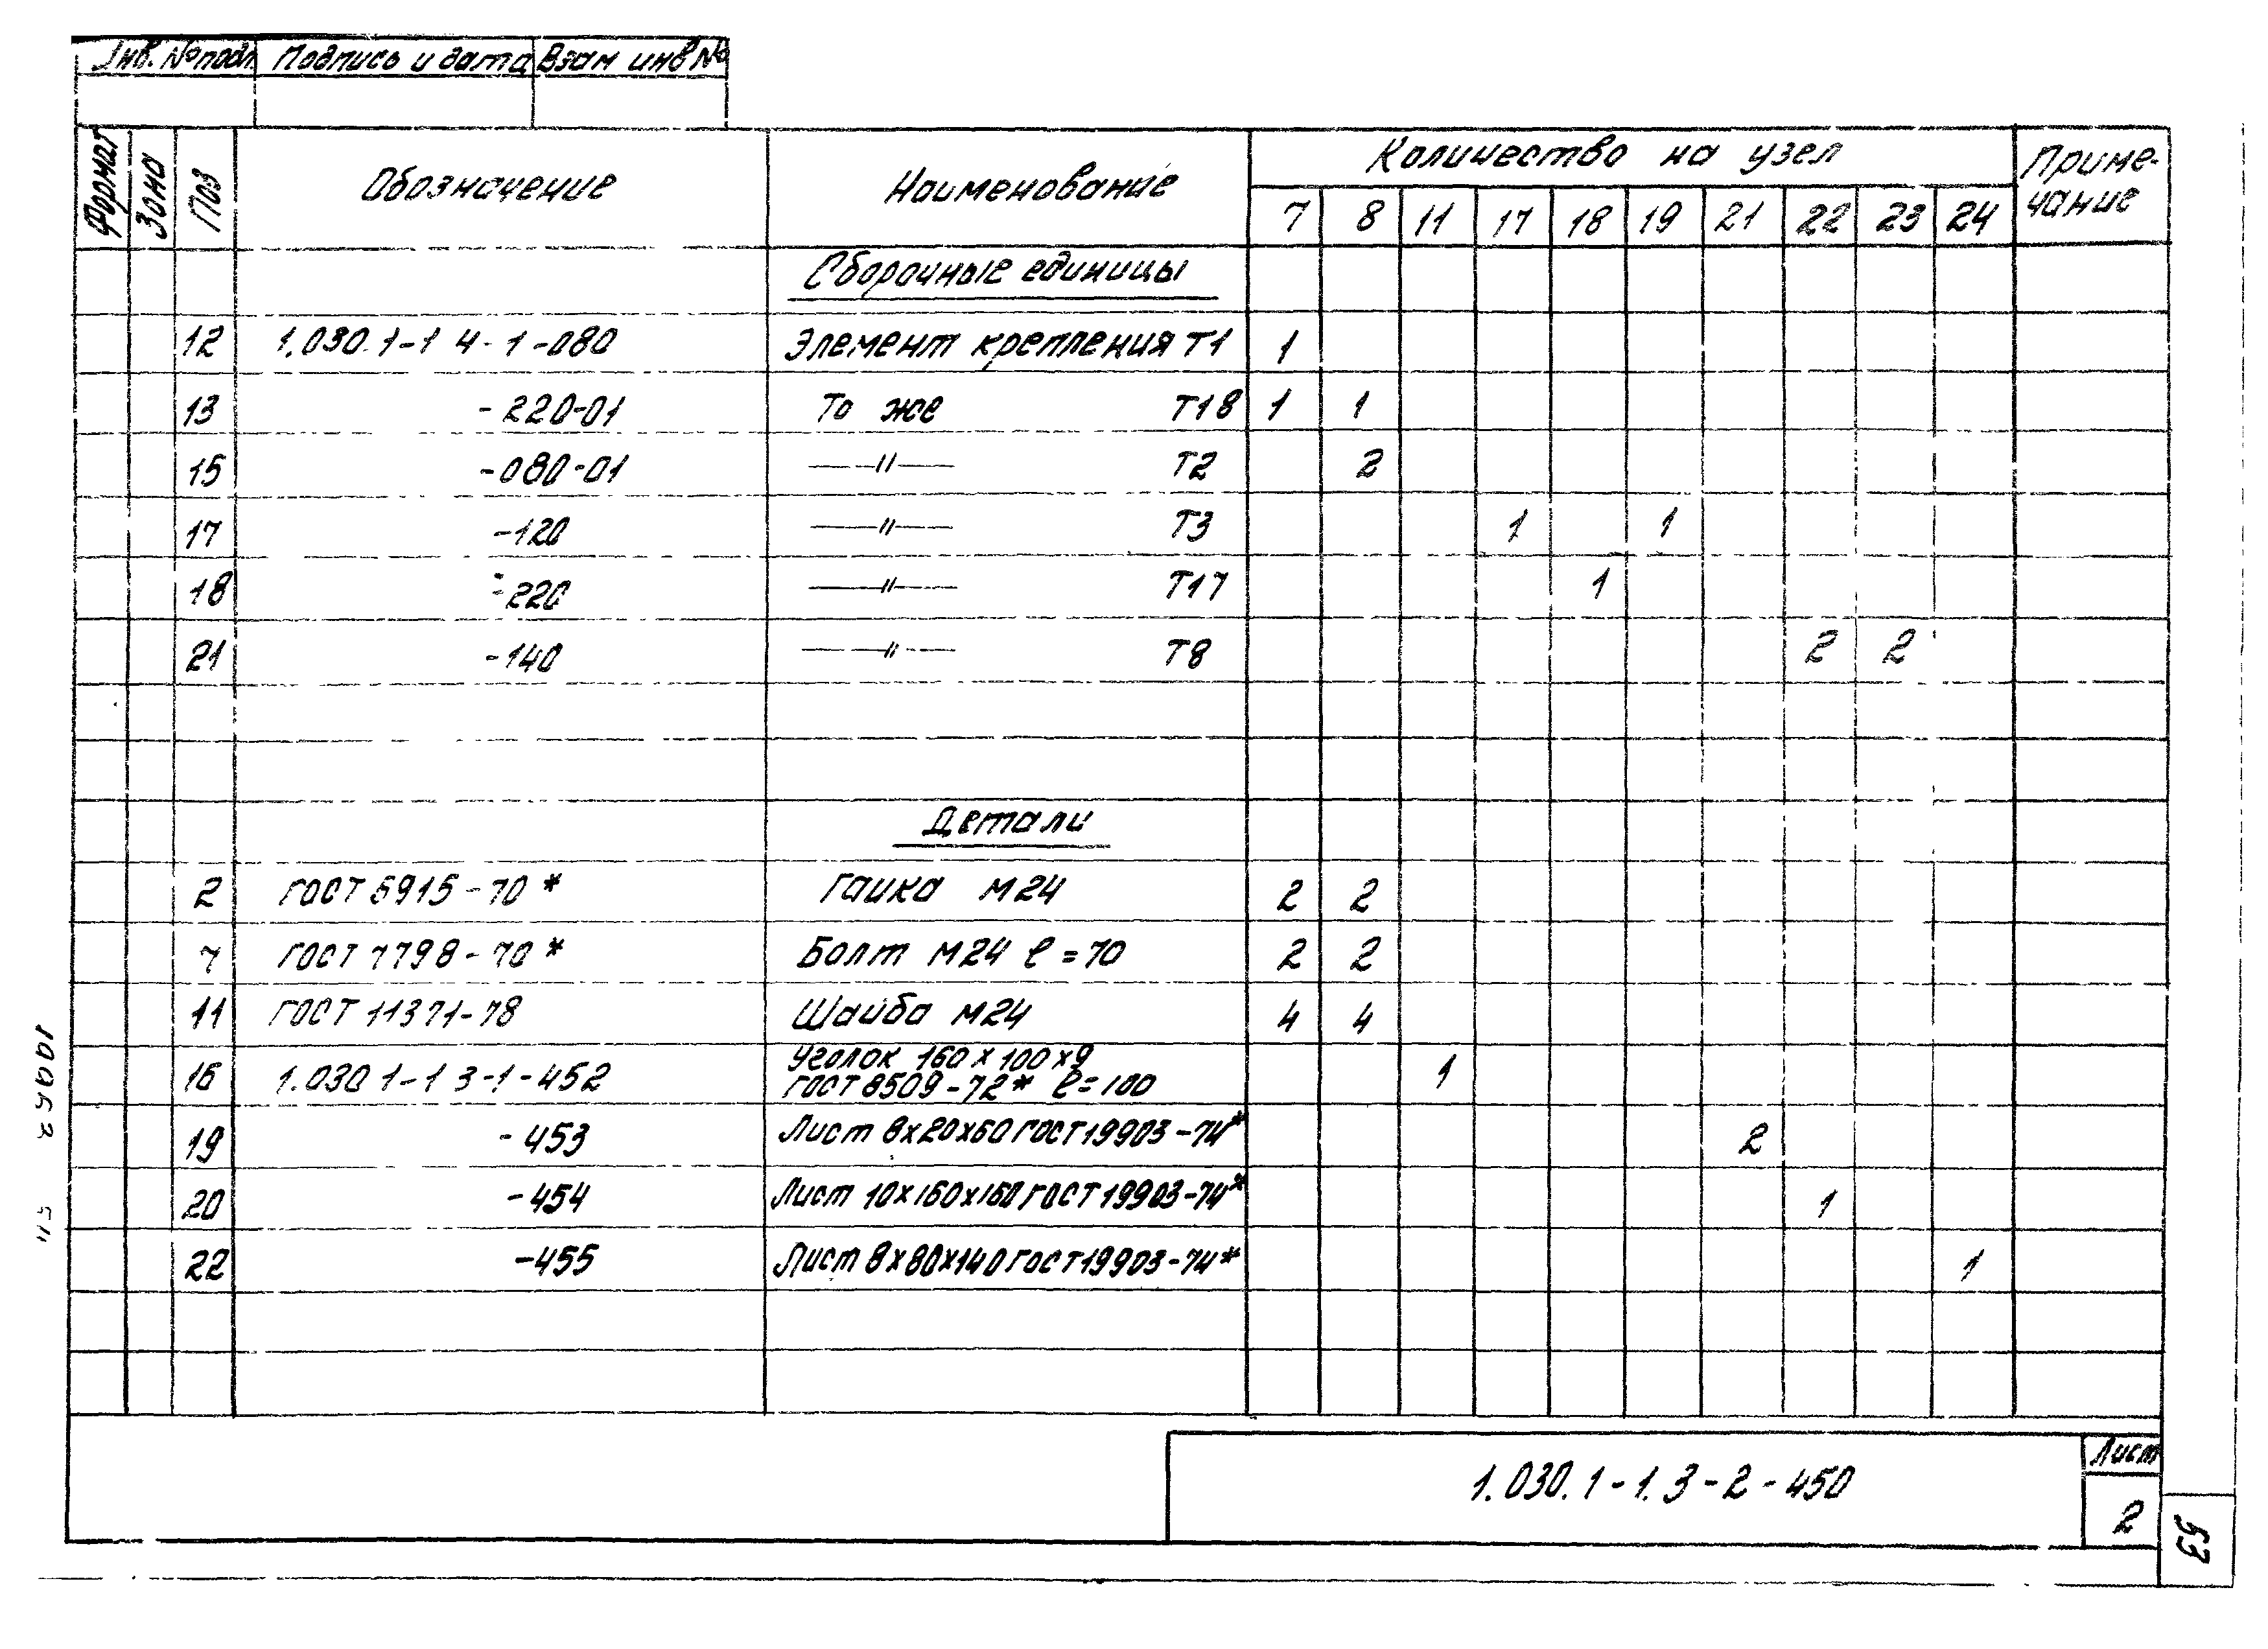 Инв. № подл. Подпись и дата Взам инв №
Формат Зона Поз Обозначение Наименование Количество на узел Приме-
чание
7 8 11 17 18 19 21 22 23 24
Сборочные единицы
12 1.030.1-1 4-1-080 Элемент крепления Т1 1
13 -220-01 То же Т18 1 1
15 -080-01 —〃— Т2 2
17 -120 —〃— Т3 1 1
18 -220 —〃— Т17 1
21 -140 —〃— Т8 2 2
Детали
2 ГОСТ 5915-70* Гайка М24 2 2
7 ГОСТ 7798-70* Болт М24 ℓ=70 2 2
11 ГОСТ 11371-78 Шайба М24 4 4
Уголок 160х100х9
16 1.030 1-1 3-1-452 ГОСТ 8509-72* ℓ=100 1
19 -453 Лист 8х20х60 ГОСТ 19903-74* 2
20 -454 Лист 10х160х160 ГОСТ 19903-74* 1
22 -455 Лист 8х80х140 ГОСТ 19903-74* 1
1.030.1-1.3-2-450
Лист
2
53